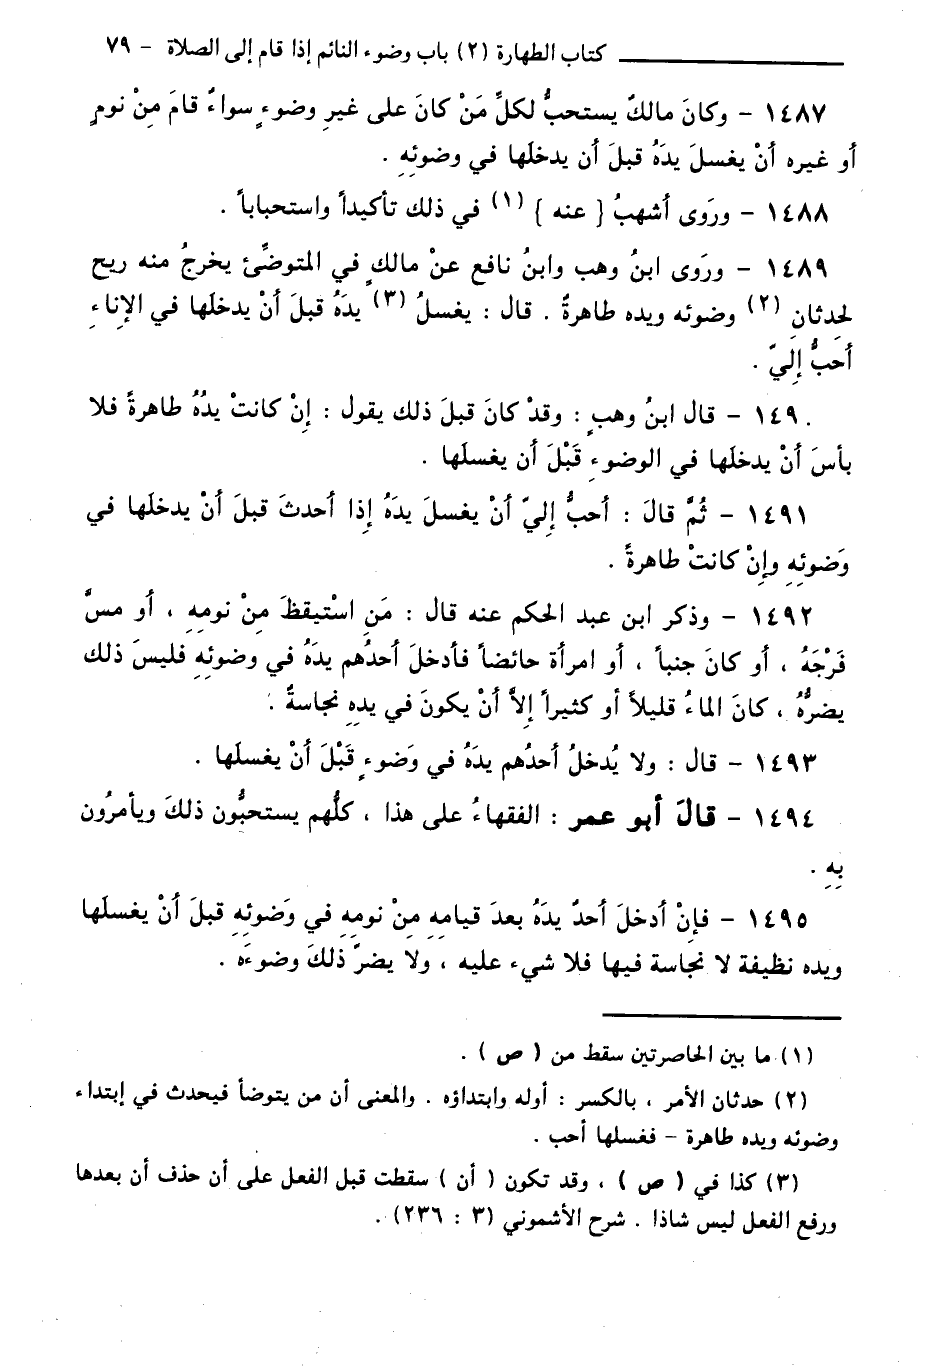 كتاب الطهارة (٢) باب وضوء النائم إذا قام إلى الصلاة - ٧٩
١٤٨٧ - وكانَ مالكٌ يستحبُّ لكلِّ مَنْ كانَ على غيرِ وضوءٍ سواءٌ قامَ مِنْ نومٍ
أو غيره أنْ يغسلَ يدَهُ قبلَ أن يدخلَها في وضوئِهِ .
١٤٨٨ - ورَوى أشهبُ { عنه } (١) في ذلك تأكيداً واستحباباً .
١٤٨٩ - ورَوى ابنُ وهب وابنُ نافع عنْ مالكٍ في المتوضِّئ يخرجُ منه ريح
لحِدثانِ (٢) وضوئه ويده طاهرةٌ . قال : يغسلُ (٣) يدَهُ قبلَ أنْ يدخلَها في الإناءِ
أحَبُّ إِليَّ .
١٤٩٠ - قال ابنُ وهبٍ : وقدْ كانَ قبلَ ذلك يقول : إنْ كانتْ يدُهُ طاهرةً فلا
بأسَ أنْ يدخلَها في الوضوءِ قَبْلَ أن يغسلَها .
١٤٩١ - ثُمَّ قالَ : أحبُّ إليَّ أنْ يغسلَ يدَهُ إذا أحدثَ قبلَ أنْ يدخلَها في
وَضوئِهِ وإنْ كانتْ طاهرةً .
١٤٩٢ - وذكر ابن عبد الحكم عنه قال : مَنِ اسْتيقظَ مِنْ نومِهِ ، أو مسَّ
فَرْجَهُ ، أو كانَ جنباً ، أو امرأة حائضاً فأدخلَ أحدُهم يدَهُ في وضوئِهِ فليسَ ذلك
يضرُّهُ ، كانَ الماءُ قليلاً أو كثيراً إلاَّ أنْ يكونَ في يدِهِ نجاسةٌ .
١٤٩٣ - قال : ولا يُدخلُ أحدُهم يدَهُ في وَضوءٍ قَبْلَ أنْ يغسلَها .
١٤٩٤ - قالَ أبو عمر : الفقهاءُ على هذا ، كلُّهم يستحبُّون ذلكَ ويأمرُون
بِهِ .
١٤٩٥ - فإنْ أدخلَ أحدٌ يدَهُ بعدَ قيامِهِ مِنْ نومِهِ في وَضوئِهِ قبلَ أنْ يغسلَها
ويده نظيفة لا نجاسة فيها فلا شيء عليه ، ولا يضرُّ ذلكَ وضوءَه .
(١) ما بين الحاصرتين سقط من ( ص ) .
(٢) حدثان الأمر ، بالكسر : أوله وابتداؤه . والمعنى أن من يتوضأ فيحدث في إبتداء
وضوئه ويده طاهرة - فغسلها أحب .
(٣) كذا في ( ص ) ، وقد تكون ( أن ) سقطت قبل الفعل على أن حذف أن بعدها
ورفع الفعل ليس شاذا . شرح الأشموني (٣ : ٢٣٦) .